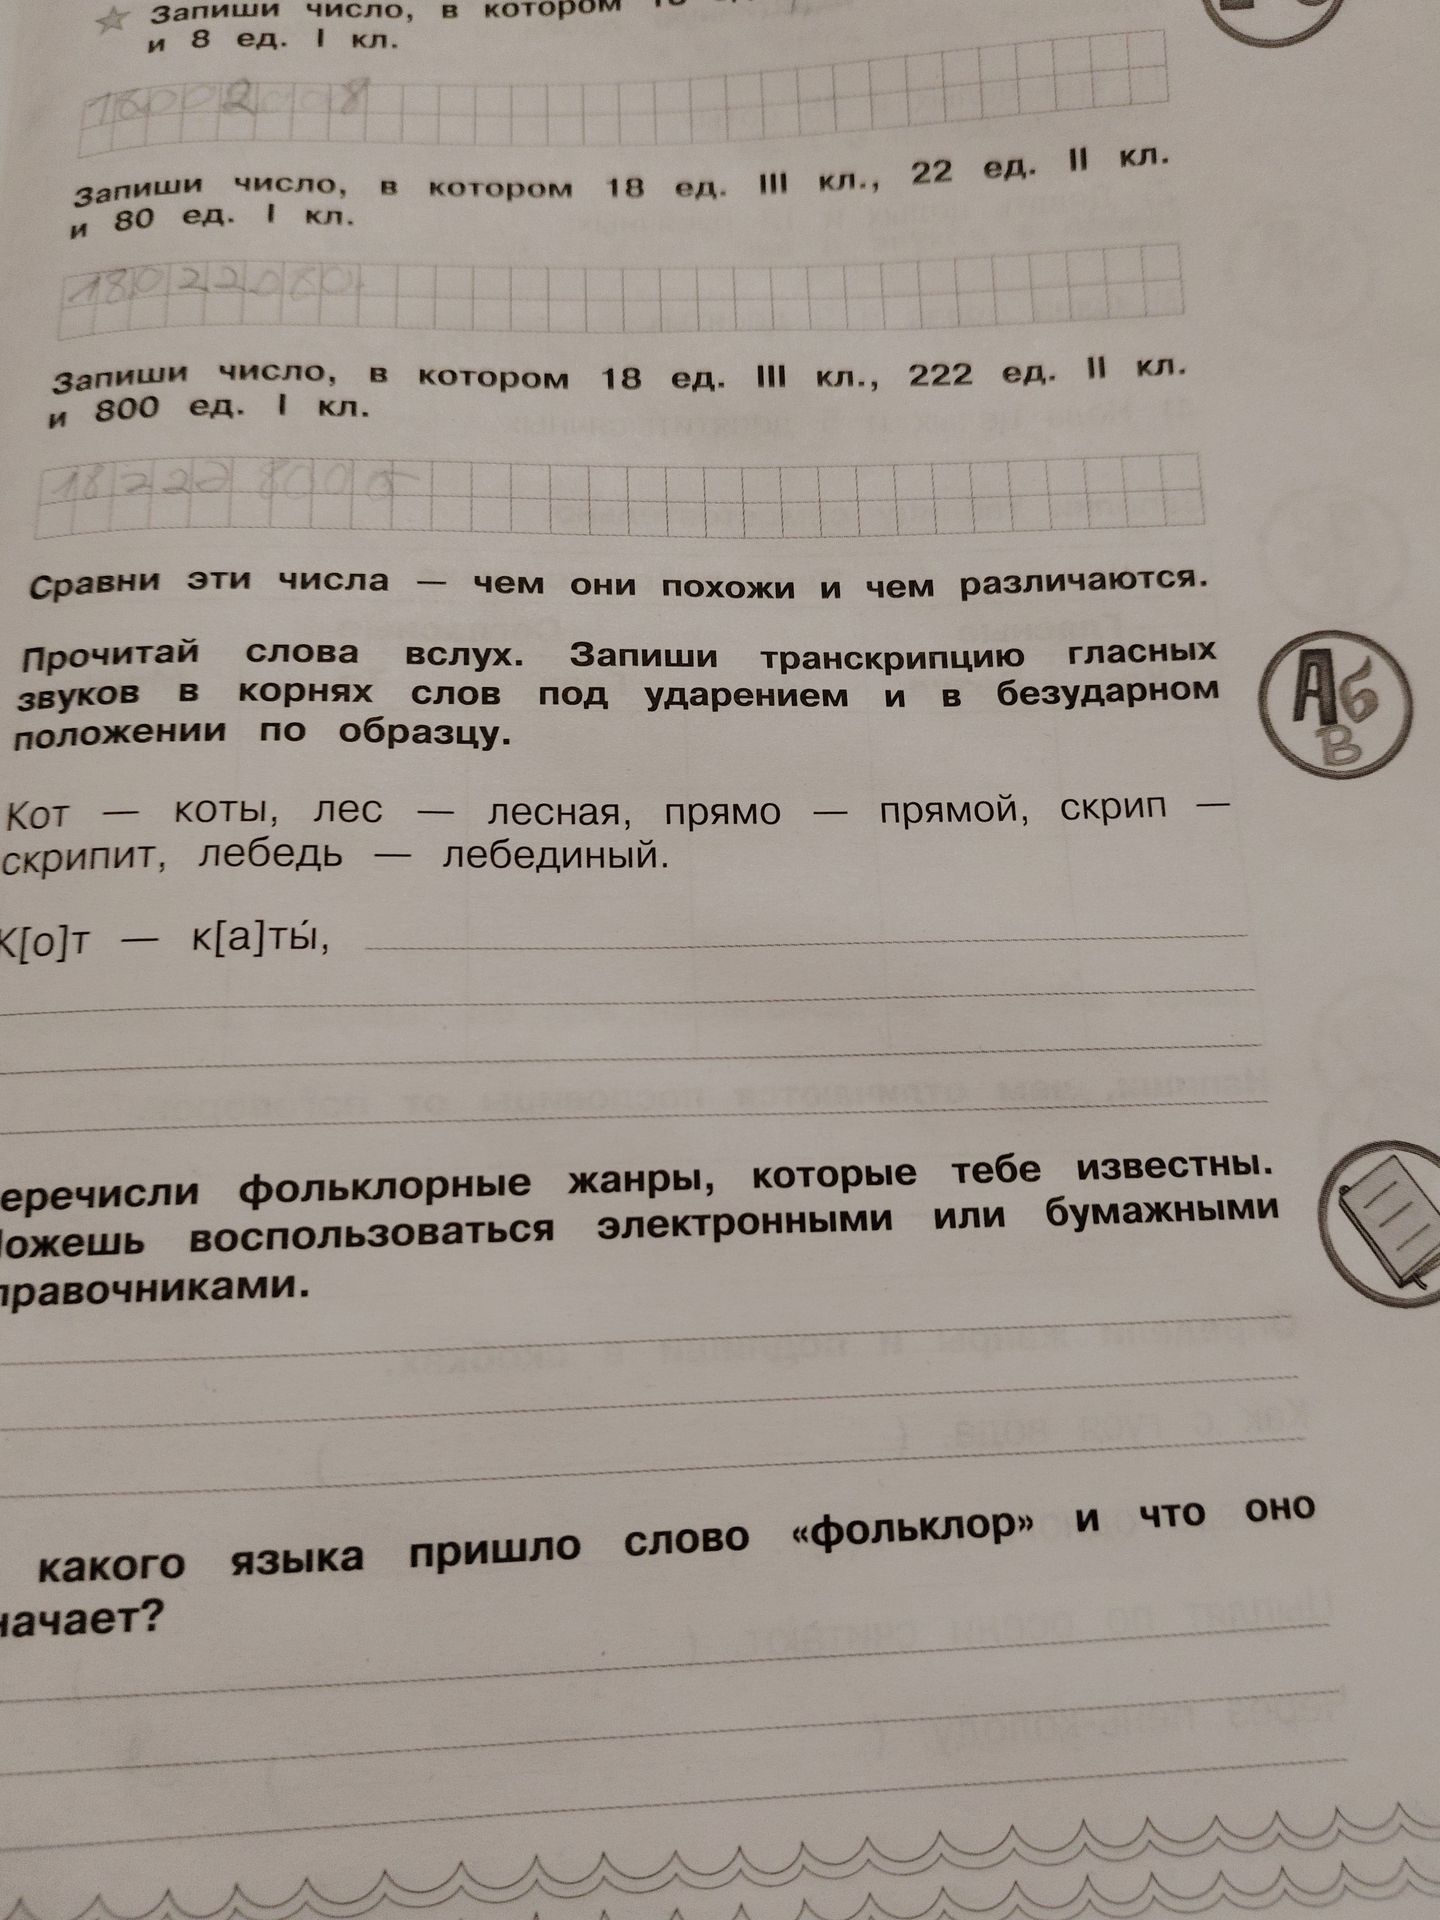 Запиши число, в котором
и 8 ед. I кл.
18002008
Запиши число, в котором 18 ед. III кл., 22 ед. II кл.
и 80 ед. I кл.
18022080
Запиши число, в котором 18 ед. III кл., 222 ед. II кл.
и 800 ед. I кл.
18222800
Сравни эти числа — чем они похожи и чем различаются.
Прочитай слова вслух. Запиши транскрипцию гласных
звуков в корнях слов под ударением и в безударном
положении по образцу.
АбВ
Кот — коты, лес — лесная, прямо — прямой, скрип —
скрипит, лебедь — лебединый.
К[о]т — к[а]ты́,
еречисли фольклорные жанры, которые тебе известны.
ожешь воспользоваться электронными или бумажными
правочниками.
какого языка пришло слово «фольклор» и что оно
начает?